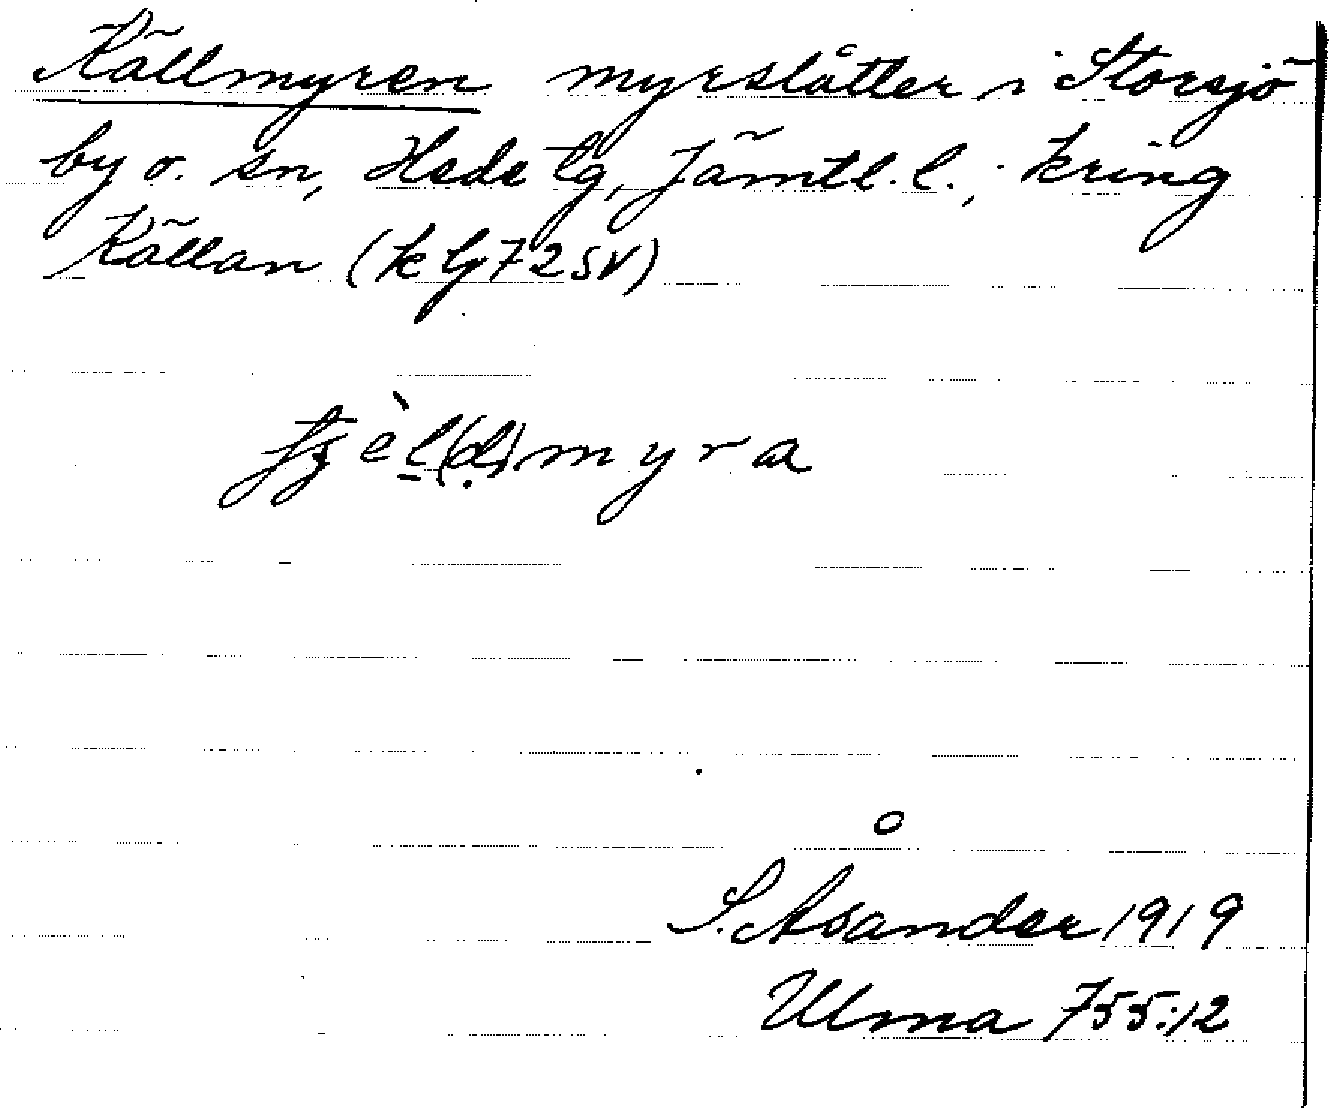 Källmyren myrslåtter i Storsjö
by o. sn, Hede tg, Jämtl. l., kring
Källan (k bj 72 SV)
S. Åsander 1919
Ulma 755:12